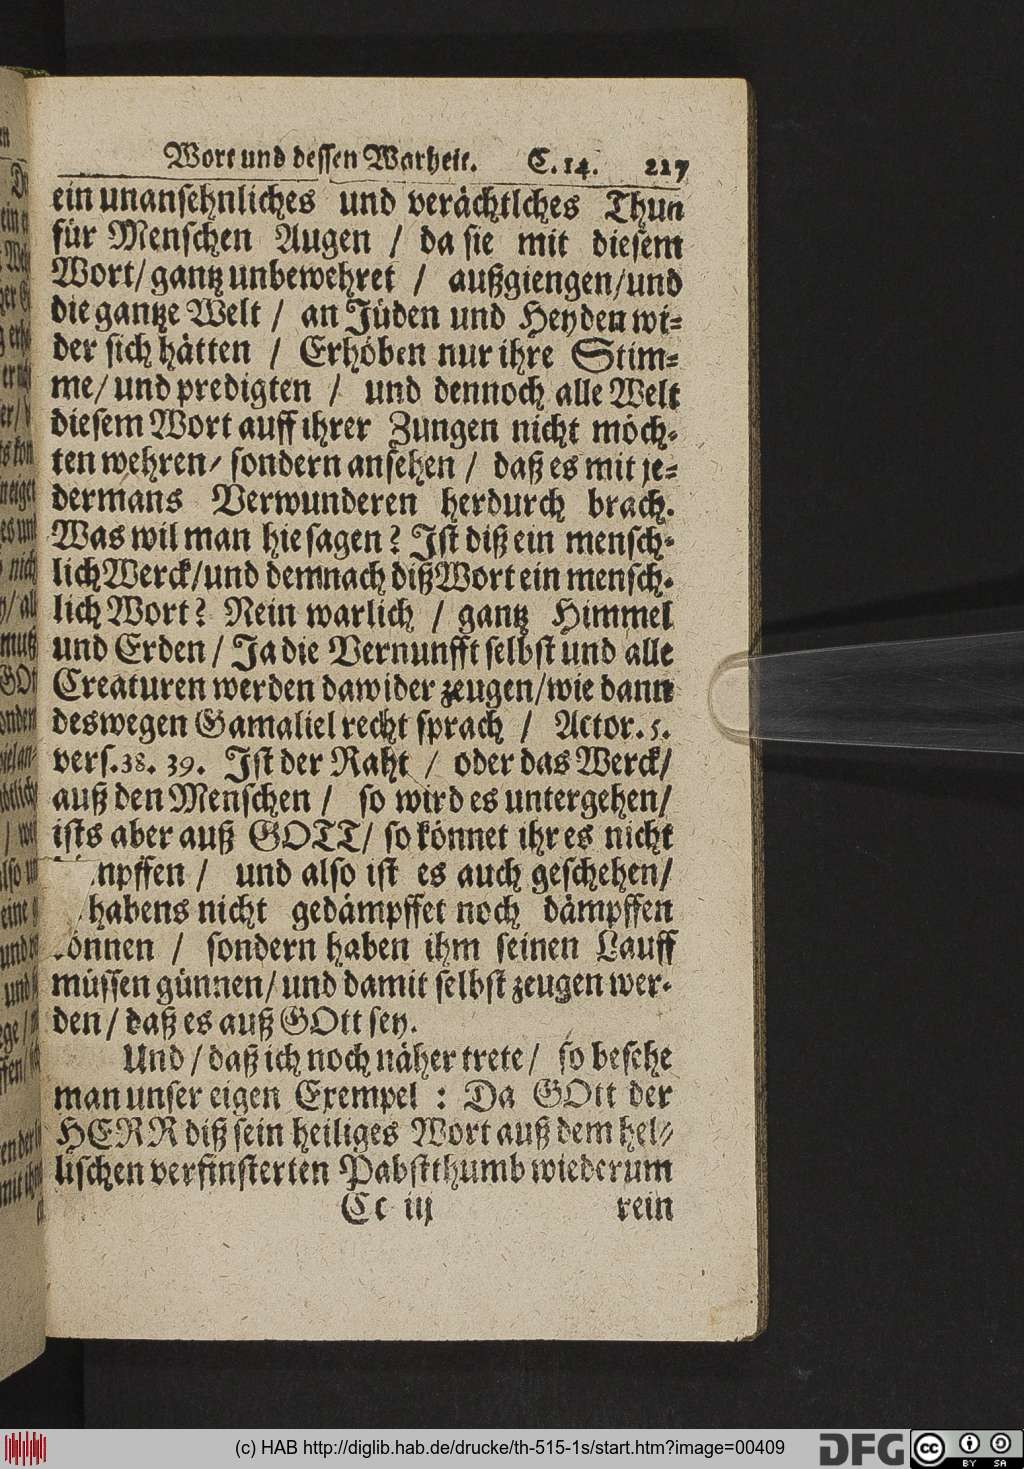 Wort und dessen Warheit. C. 14. 217
ein unansehnliches und verächtlches Thun
für Menschen Augen / da sie mit diesem
Wort/ gantz unbewehret / außgiengen/und
die gantze Welt / an Jüden und Heyden wi⸗
der sich hätten / Erhöben nur ihre Stim⸗
me/ und predigten / und dennoch alle Welt
diesem Wort auff ihrer Zungen nicht möch⸗
ten wehren/ sondern ansehen / daß es mit je⸗
dermans Verwunderen herdurch brach.
Was wil man hie sagen? Ist diß ein mensch⸗
lich Werck/und demnach diß Wort ein mensch⸗
lich Wort? Nein warlich / gantz Himmel
und Erden / Ja die Vernunfft selbst und alle
Creaturen werden dawider zeugen/wie dann
deswegen Gamaliel recht sprach / Actor. 5.
vers. 38. 39. Ist der Raht / oder das Werck/
auß den Menschen / so wird es untergehen/
ists aber auß GOTT/ so könnet ihr es nicht
mpffen / und also ist es auch geschehen/
habens nicht gedämpffet noch dämpffen
können / sondern haben ihm seinen Lauff
müssen günnen/ und damit selbst zeugen wer⸗
den / daß es auß GOtt sey.
Und / daß ich noch näher trete / so besehe
man unser eigen Exempel : Da GOtt der
HERR diß sein heiliges Wort auß dem hel⸗
lischen verfinsterten Pabstthumb wiederum
Cc iij rein
(c) HAB http://diglib.hab.de/drucke/th-515-1s/start.htm?image=00409
DFG cc BY SA